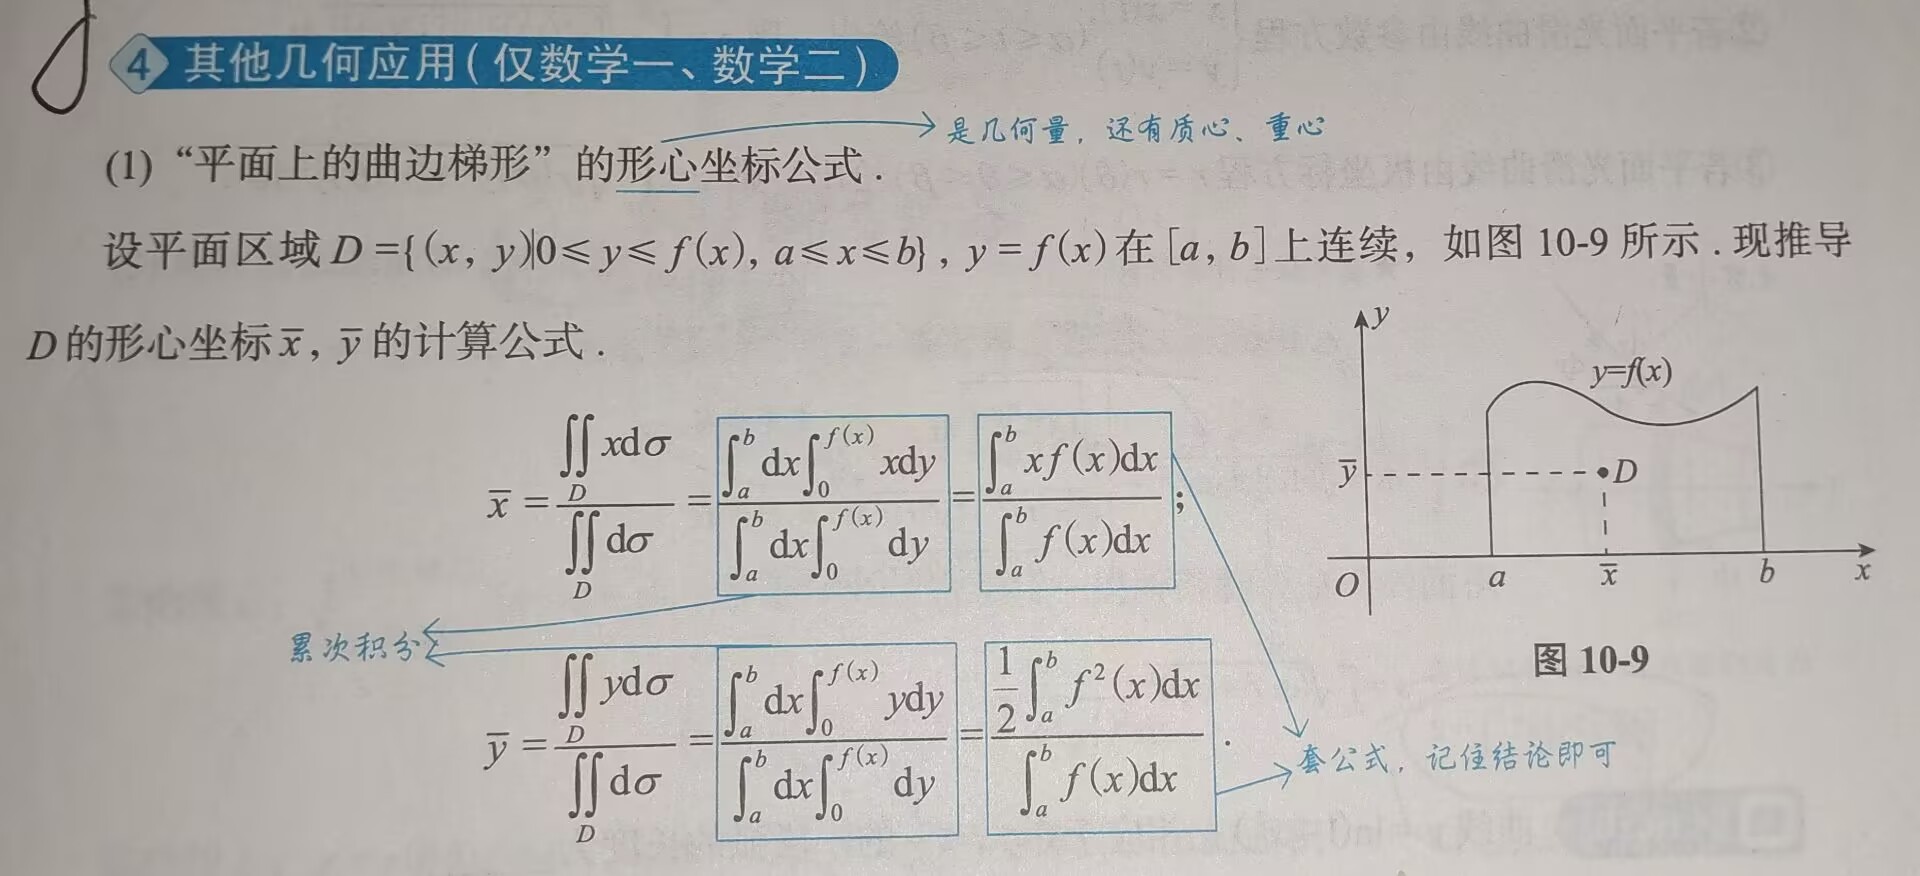 4 其他几何应用(仅数学一、数学二)
是几何量，还有质心、重心
(1)“平面上的曲边梯形”的形心坐标公式.
设平面区域D={(x, y)|0≤y≤f(x), a≤x≤b}, y=f(x)在[a, b]上连续，如图 10-9 所示.现推导
D的形心坐标x̄, ȳ的计算公式.
x̄ = ∬_D xdσ / ∬_D dσ = ∫_a^b dx∫_0^{f(x)} xdy / ∫_a^b dx∫_0^{f(x)} dy = ∫_a^b xf(x)dx / ∫_a^b f(x)dx ;
累次积分
ȳ = ∬_D ydσ / ∬_D dσ = ∫_a^b dx∫_0^{f(x)} ydy / ∫_a^b dx∫_0^{f(x)} dy = 1/2 ∫_a^b f²(x)dx / ∫_a^b f(x)dx .
套公式，记住结论即可
y
y=f(x)
ȳ
D
O a x̄ b x
图 10-9